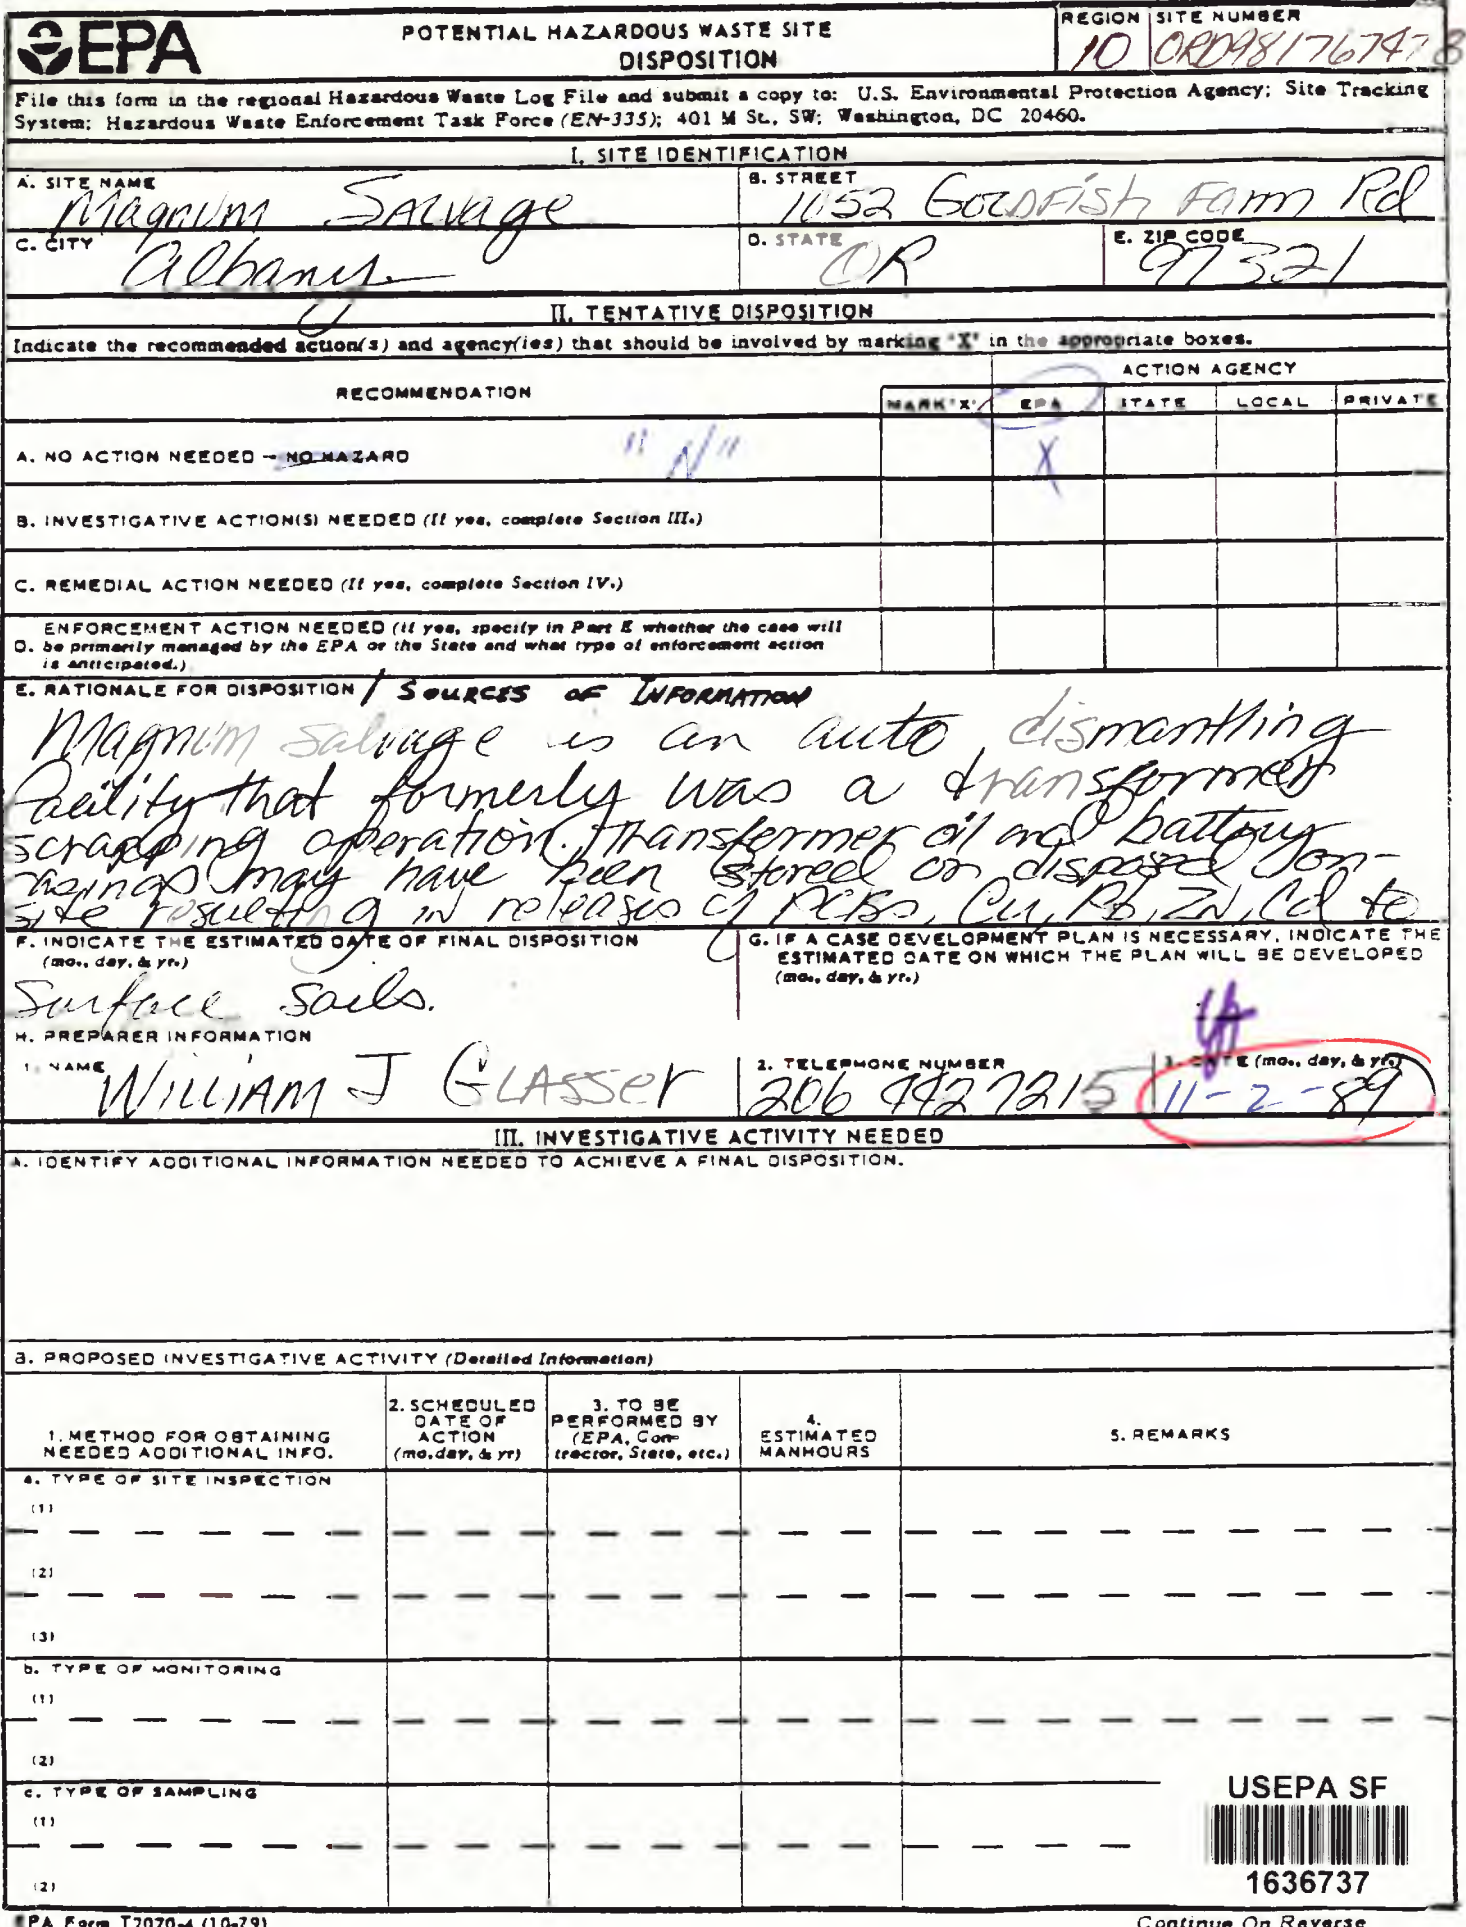 EPA
POTENTIAL HAZARDOUS WASTE SITE
DISPOSITION
REGION
10
SITE NUMBER
ORD981767478
File this form in the regional Hazardous Waste Log File and submit a copy to: U.S. Environmental Protection Agency; Site Tracking
System; Hazardous Waste Enforcement Task Force (EN-335); 401 M St., SW; Washington, DC 20460.
I. SITE IDENTIFICATION
A. SITE NAME
Magnum Salvage
B. STREET
1052 Goldfish Farm Rd
C. CITY
Albany
D. STATE
OR
E. ZIP CODE
97321
II. TENTATIVE DISPOSITION
Indicate the recommended action(s) and agency(ies) that should be involved by marking 'X' in the appropriate boxes.
RECOMMENDATION
MARK 'X'
ACTION AGENCY
EPA
STATE
LOCAL
PRIVATE
A. NO ACTION NEEDED - NO HAZARD
"N"
X
B. INVESTIGATIVE ACTION(S) NEEDED (If yes, complete Section III.)
C. REMEDIAL ACTION NEEDED (If yes, complete Section IV.)
D. ENFORCEMENT ACTION NEEDED (if yes, specify in Part E whether the case will
be primarily managed by the EPA or the State and what type of enforcement action
is anticipated.)
E. RATIONALE FOR DISPOSITION / SOURCES OF INFORMATION
Magnum Salvage is an auto dismantling
facility that formerly was a transformer
scrapping operation. Transformer oil and battery
casings may have been stored or disposed on-
site resulting in releases of PCBs, Cu, Pb, Zn, Cd to
F. INDICATE THE ESTIMATED DATE OF FINAL DISPOSITION
(mo., day, & yr.)
surface soils.
G. IF A CASE DEVELOPMENT PLAN IS NECESSARY, INDICATE THE
ESTIMATED DATE ON WHICH THE PLAN WILL BE DEVELOPED
(mo., day, & yr.)
H. PREPARER INFORMATION
1. NAME
William J Glasser
2. TELEPHONE NUMBER
206 4427215
3. DATE (mo., day, & yr.)
11-2-89
III. INVESTIGATIVE ACTIVITY NEEDED
A. IDENTIFY ADDITIONAL INFORMATION NEEDED TO ACHIEVE A FINAL DISPOSITION.
B. PROPOSED INVESTIGATIVE ACTIVITY (Detailed Information)
1. METHOD FOR OBTAINING
NEEDED ADDITIONAL INFO.
2. SCHEDULED
DATE OF
ACTION
(mo,day, & yr)
3. TO BE
PERFORMED BY
(EPA, Con-
tractor, State, etc.)
4.
ESTIMATED
MANHOURS
5. REMARKS
a. TYPE OF SITE INSPECTION
(1)
(2)
(3)
b. TYPE OF MONITORING
(1)
(2)
c. TYPE OF SAMPLING
(1)
(2)
USEPA SF
1636737
EPA Form T2070-4 (10-79)
Continue On Reverse